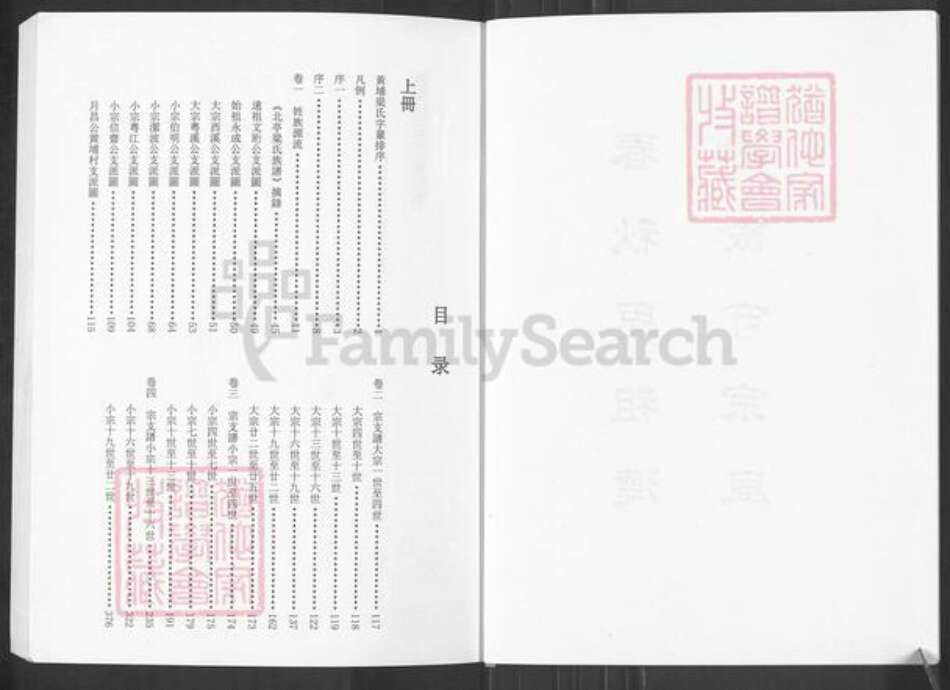 目录
上冊
黃埔梁氏字輩排序 1
凡例 2
序一 3
序二 8
卷一 姓族源流 11
《北亭梁氏族譜》摘錄 45
遠祖文珩公支派圖 49
始祖永成公支派圖 50
大宗西溪公支派圖 51
大宗粵溪公支派圖 53
小宗伯明公支派圖 64
小宗潔波公支派圖 68
小宗粵江公支派圖 104
小宗信齋公支派圖 109
月昌公黃埔村支派圖 115
卷二 宗支譜大宗一世至四世 117
大宗四世至十世 118
大宗十世至十三世 119
大宗十三世至十六世 122
大宗十六世至十九世 137
大宗十九世至廿二世 162
大宗廿二世至廿五世 173
卷三 宗支譜小宗一世至四世 174
小宗四世至七世 175
小宗七世至十世 179
小宗十世至十三世 191
卷四 宗支譜小宗十三世至十六世 235
小宗十六世至十九世 322
小宗十九世至廿二世 376
FamilySearch
猶他家
譜學會
收藏
猶他家
譜學會
收藏